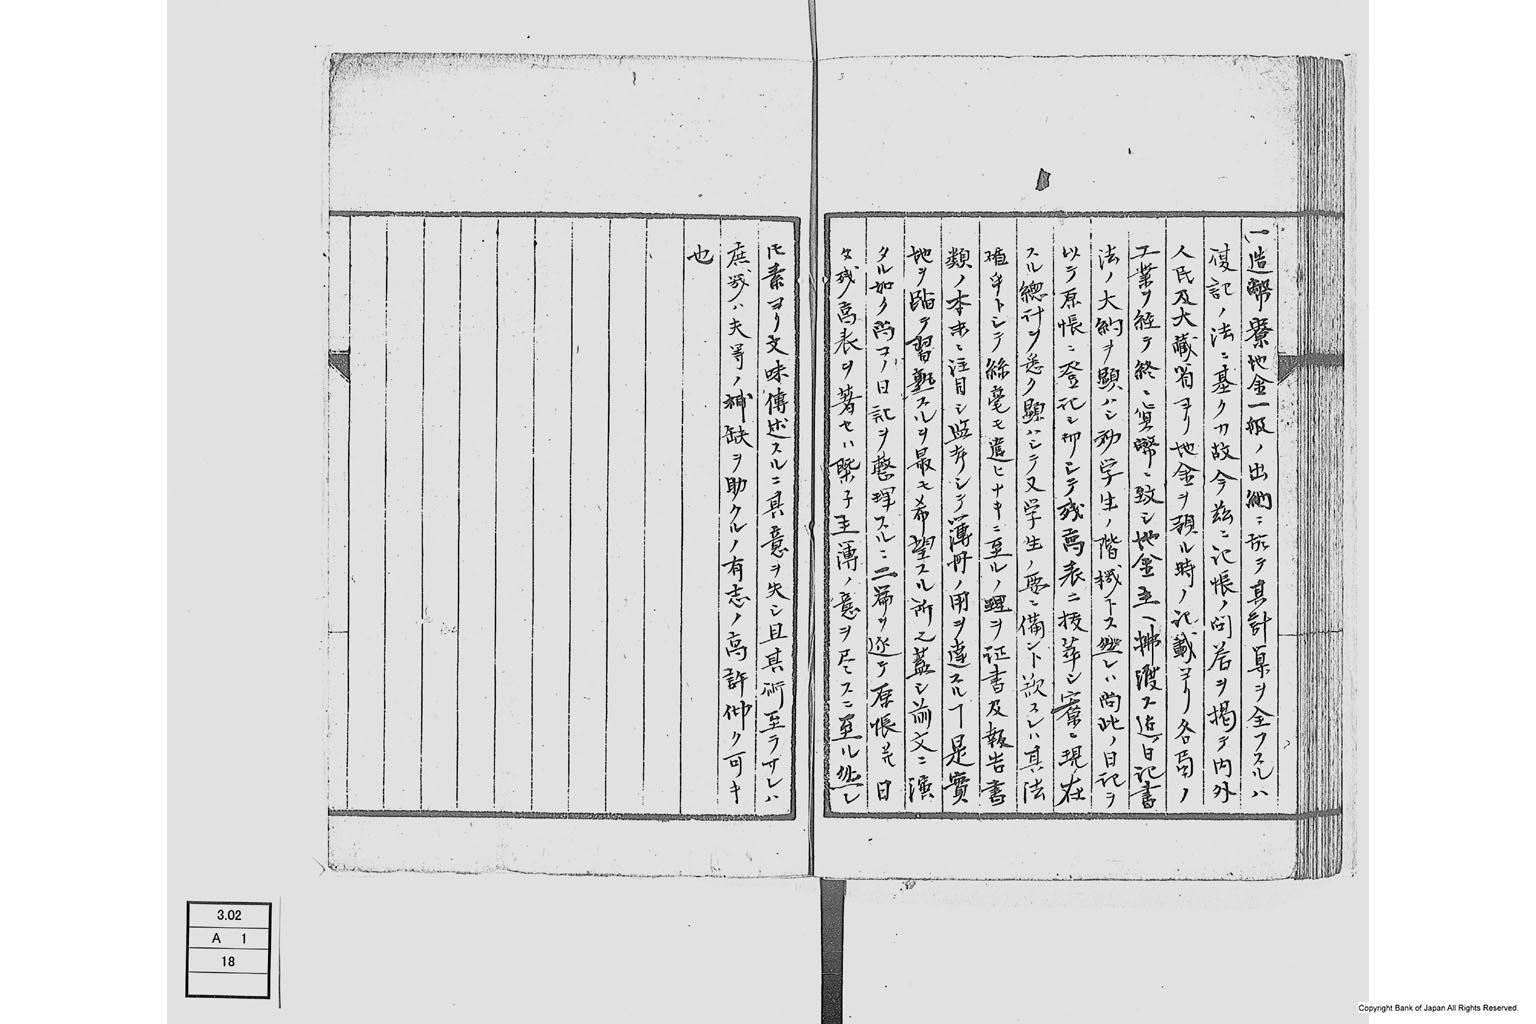 一造幣寮地金一般ノ出納ニ於テ其計算ヲ全フスルハ
復記ノ法ニ基クカ故今茲ニ記帳ノ問答ヲ掲テ内外
人民及大藏省ヨリ地金ヲ領ル時ノ記載ヨリ各局ノ
工業ヲ経テ終ニ貨幣ニ致シ地金主ヘ拂渡ス迄日記書
法ノ大約ヲ顕ハシ初学生ノ階梯トス然レハ尚此ノ日記ヲ
以テ原帳ニ登記シ即シテ残高表ニ抜萃シ寮ニ現在
スル總計ヲ悉ク顕ハシテ又学生ノ要ニ備ント欲スレハ其法
確乎トシテ絲毫モ違ヒナキニ至ルノ理ヲ証書及報告書
類ノ本末ニ注目シ監査シテ簿冊ノ用ヲ達スルヿ是實
地ヲ踏テ習熟スルヲ最モ希望スル所之蓋シ前文ニ演
タル如ク尚コノ日記ヲ整理スルニ二篇ヲ逐テ原帳并日
々残高表ヲ著セハ槩子主簿ノ意ヲ尽スニ至ル然レ
𪜈素ヨリ文味傳述スルニ其意ヲ失シ且其術至ラサレハ
庶幾ハ夫等ノ補缺ヲ助クルノ有志ノ高許仰ク可キ
也
3.02
A 1
18
Copyright Bank of Japan All Rights Reserved.